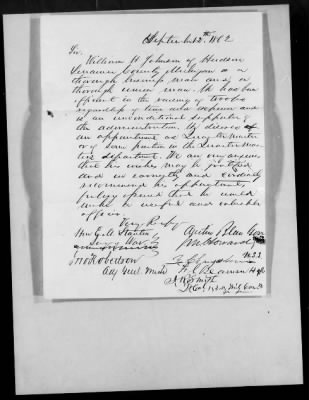 September 2th 1862
Sir,
William H Johnson of Hudson
Lenawee County Michigan is a
thorough business man and a
thorough union man. He has been
efficient in the raising of troops
regardless of time and expense and
is an unconditional supporter of
the administration. He desires
an appointment as Brig Qr Master
or of some position in the Quarter Mas-
ters department. We are very anxious
that his wishes may be gratified
and we earnestly and cordially
recommend his appointment
fully assured that he would
make a useful and valuable
officer.
Very Respy
Hon E. M. Stanton Austin Blair Gov
Secy War J M Howard
U.S.S.
Jno Robertson F. C. Beaman
Adj Genl Mich
Smith